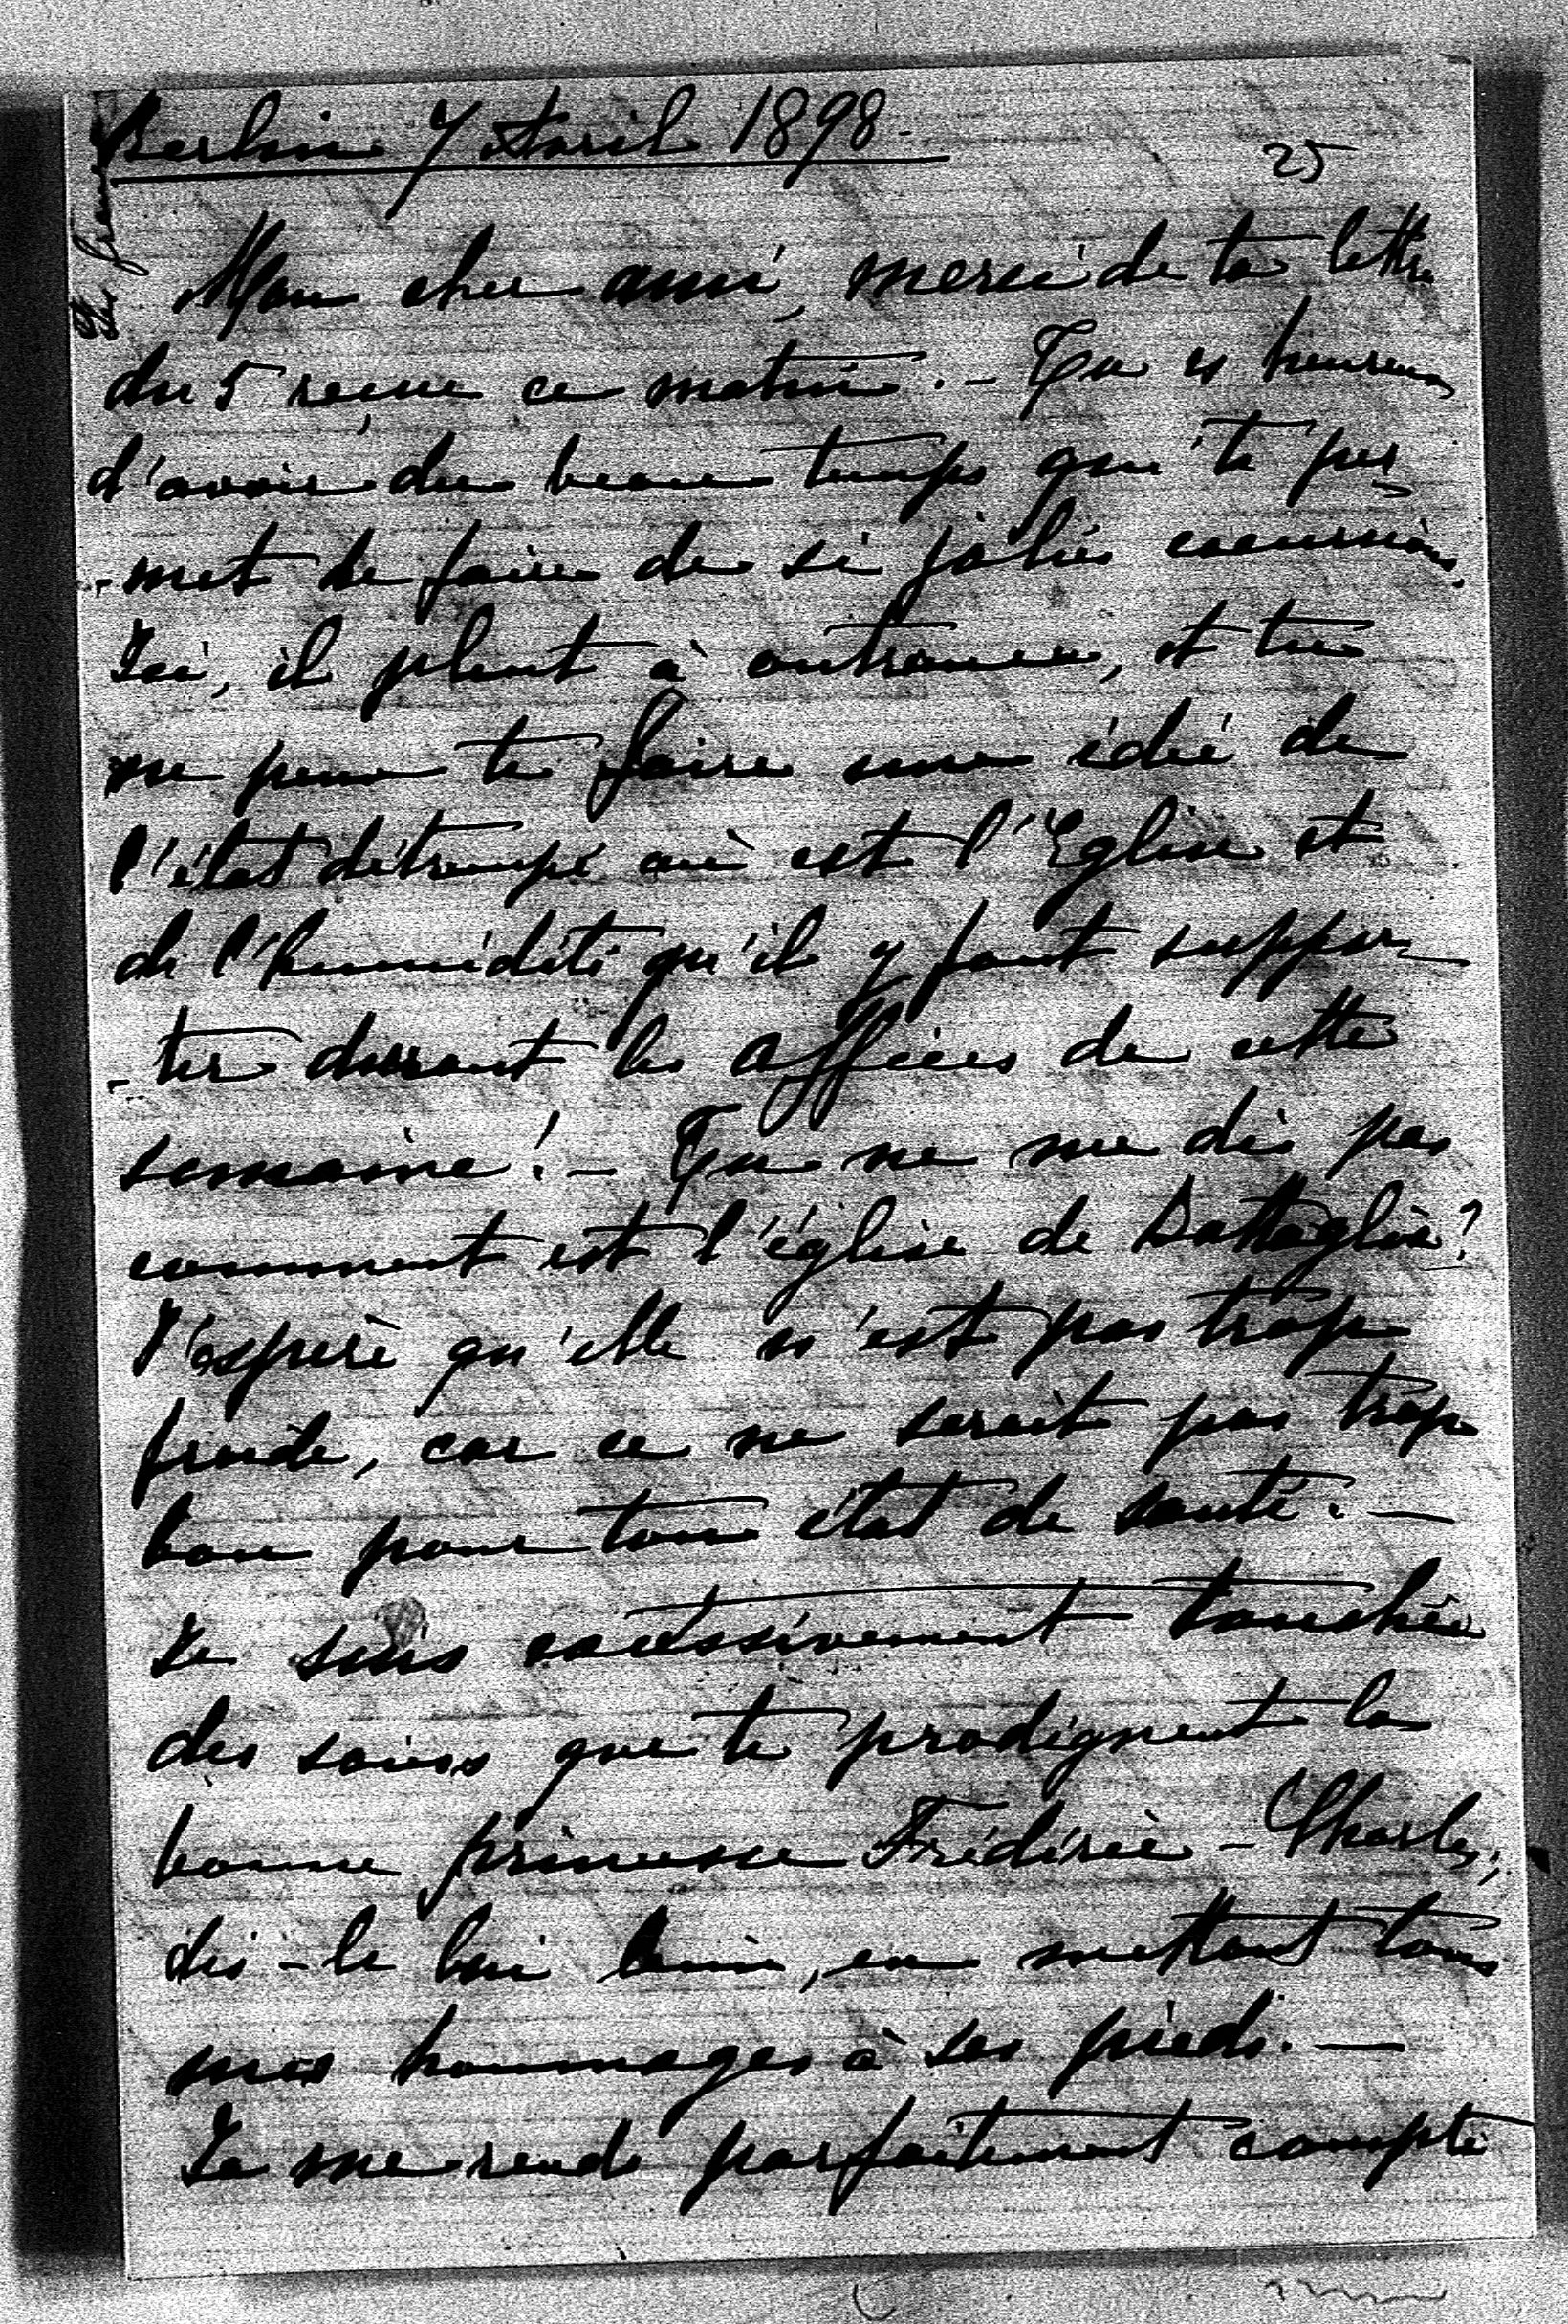 Berlin 7 Avril 1898.
25
Mon cher ami, merci de ta lettre
du 5 reçue ce matin. - Tu es heureux
d'avoir du beau temps qui te per
-met de faire de si jolies excursions.
Ici, il pleut à outrance, et tu
ne peux te faire une idée de
l'état détrempé où est l'Eglise et
de l'humidité qu'il y faut suppor-
-ter durant les offices de cette
semaine! - Tu ne me dis pas
comment est l'église de Battaglia?
J'espère qu'elle n'est pas trop
froide, car ce ne serait pas trop
bon pour ton état de santé. -
Je suis excessivement touchée
des soins que te prodiguent la
bonne princesse Frédéric-Charles;
dis-le lui bien, en mettant tous
mes hommages à ses pieds. -
Je me rends parfaitement compte